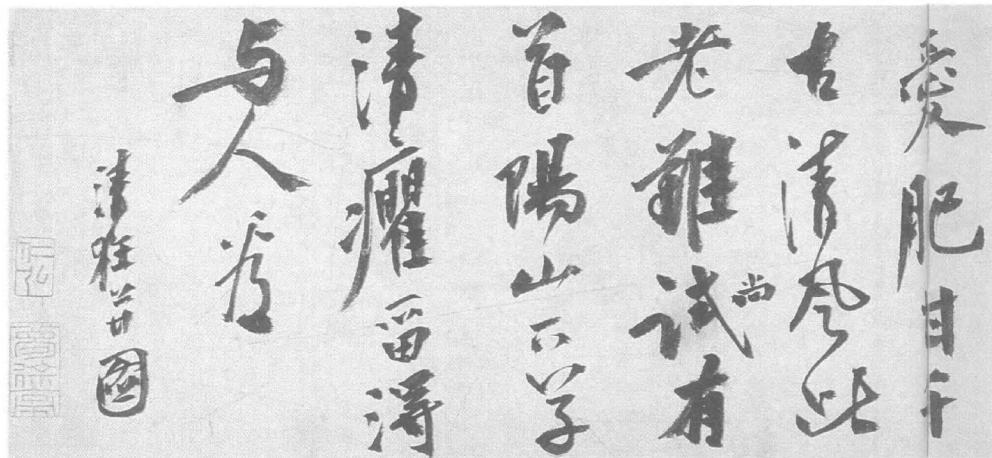 愛肥甘千
古清風此
老難試尚有
首陽山下草
清癯留得
与人看
清狂